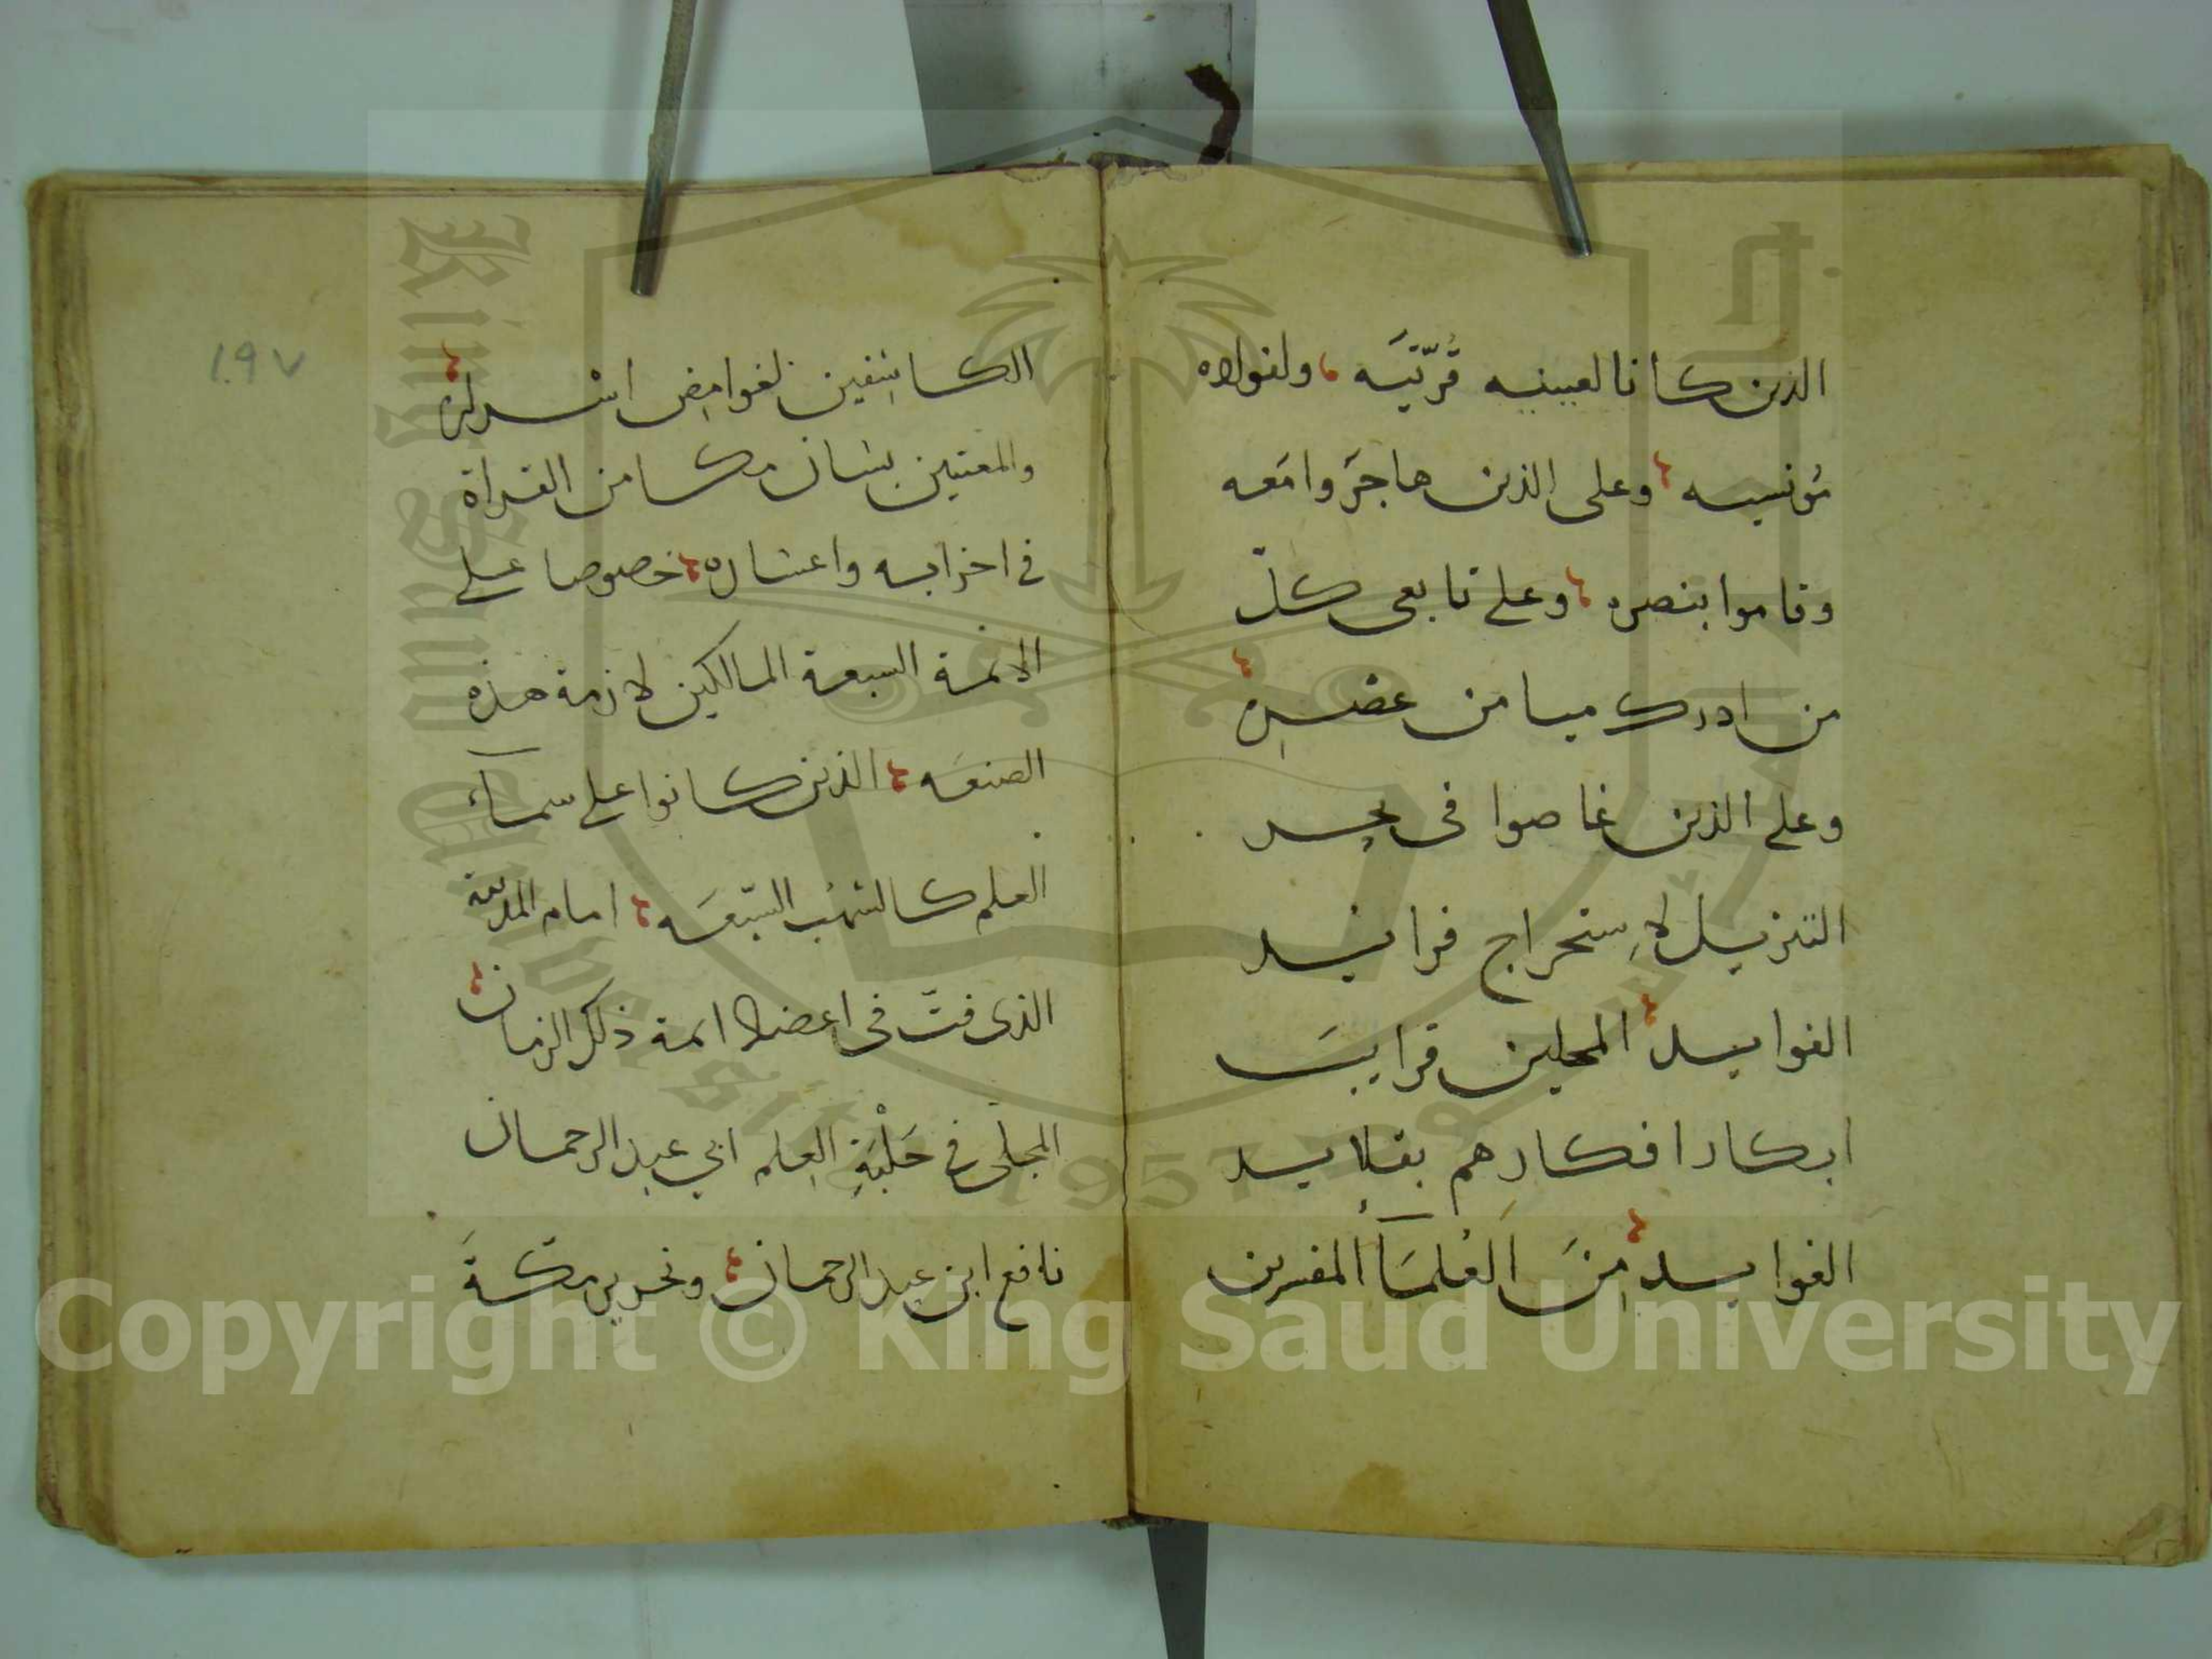 الذين كانا لعينيه قُرّتيَه، ولفولاه
مُونسيه، وعلى الذين هاجَروا مَعه
وقاموا بنصره، وعلى تابعى كلّ
من ادرك ميامن عصره،
وعلى الذين غاصوا فى بحر
التنزيل لاِستخراج فرايد
الفوايد، المحلين قرايبَ
ابكار افكارهم بقلايد
الفوايد، مِنَ العُلمَآ المفسرين
١٠٩٧
الكاشِفين لغوامِض اسراره،
والمعتنين بشان مكامن القراة
فى احزابه واعشاره، خصوصا على
الائمة السبعة المالكين لازمة هذه
الصنعَه، الذين كانوا على سمآء
العلم كالشهُب السّبعَه، امام المدينة
الذى فتّ فى اعضد ائمة ذلك الزمان،
المجلّى فى حَلْبَةِ العِلم ابي عبد الرحمان
نافع ابن عبد الرحمان، ونحرير مكةَ
King Saud University
1957
Copyright © King Saud University